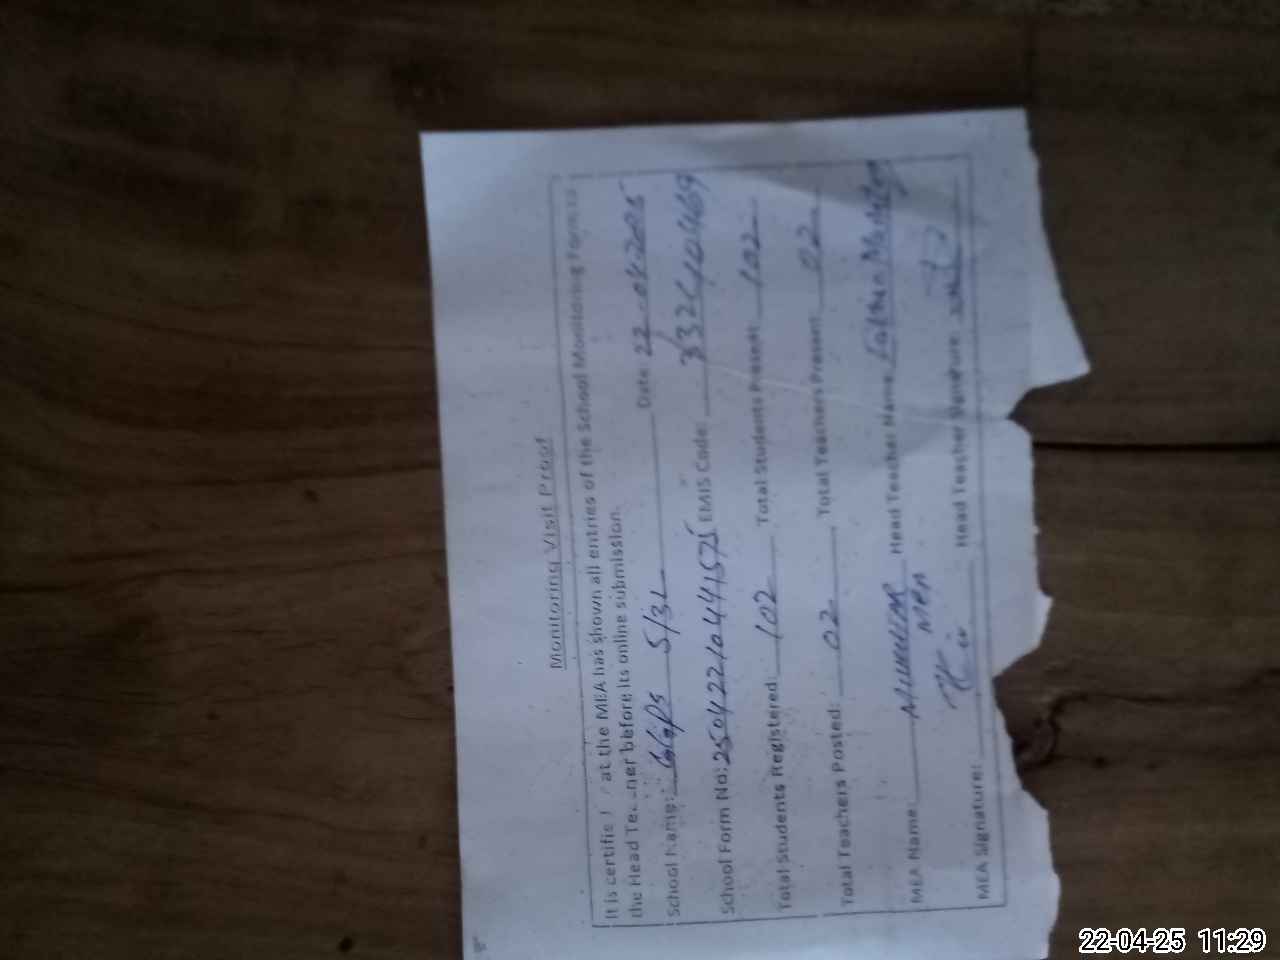 Monitoring Visit Proof
It is certified that the MEA has shown all entries of the School Monitoring Form to
the Head Teacher before its online submission.
School Name: GGPS 5/3L Date: 22-04-2025
School Form No: 25042210441575 EMIS Code: 33210469
Total Students Registered: 102 Total Students Present: 102
Total Teachers Posted: 02 Total Teachers Present: 02
MEA Name: MUNAWAR Head Teacher Name: Fatima Mushtaq
MEA
MEA Signature: Head Teacher Signature:
22-04-25 11:29